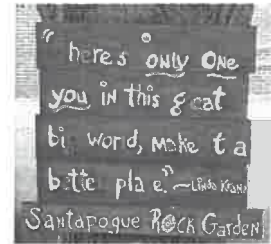 " here's only One
you in this g eat
big world, make t a
b tte pla e." ~Linda Kranz
Santapogue Rock Garden